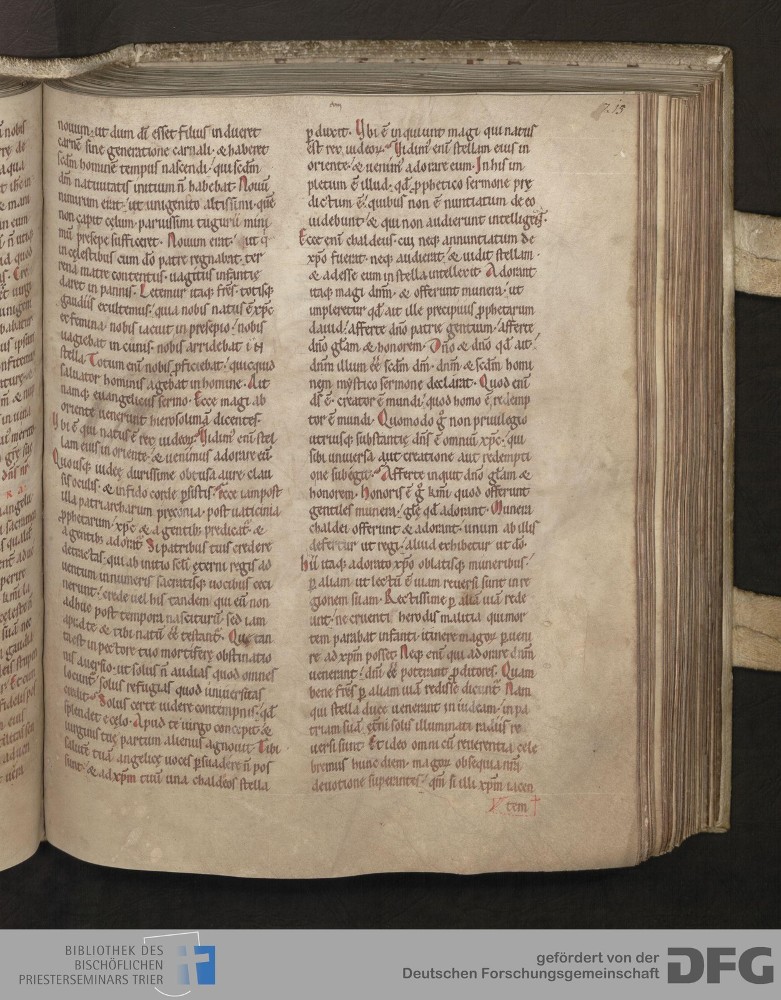 nouum ut dum dī esset filius indueret
carnē sine generatione carnali · & haberet
scdm hominē tempus nascendi / qui scdm
dm natiuitatis initium n̄ habebat · Nouū
mirum erat / ut unigenito altissimi · quē
non capit celum · paruissimi tugurii mini
mū presepe sufficeret · Nouum erat / ut q̇
in celestibus cum dō patre regnabat · ter
rena matre contentus · uagitus infantie
daret in pannis · Letemur itaq; frēs · totisq;
gaudiis exultemus / quia nobis natus ē xpc
ex femina · nobis iacuit in presepio / nobis
uagiebat in cunis · nobis arridebat in
stella · Totum enī nobis ꝓficiebat / quicquid
saluator hominis agebat in homine · Ait
namq; euangelicus sermo · Ecce magi ab
oriente uenerunt hierosolimā dicentes ·
Vbi ē qui natus ē rex iudeoꝝ · Vidimꝰ enī stel
lam eius in oriente · & uenimus adorare eū ·
Quousq; iudee durissime obtusa aure · clau
sis oculis · & infido corde ꝑsistis · Ecce iam post
illa patriarcharum preconia · post uaticinia
ꝓphetarum · xpc & a gentib; predicat᷑ · &
a gentib; adorat᷑ · Si patribus tuis credere
detrectas · qui ab initio scli eterni regis ad
uentum innumeris sacratisq; uocibus ceci
nerunt / crede uel his tandem qui eū non
adhuc post tempora nasciturū · sed iam
apud te & tibi natū ēē testant᷑ · Que tan
ta est in pectore tuo mortifere obstinatio
nis auersio · ut solus n̄ audias quod omnes
locunt᷑ · solus refugias quod uniuersitas
credit · Solus certe uidere contempnis / qd
splendet e celo · Apud te uirgo concepit · &
uirginis tue partum alienus agnouit · Tibi
salutē tuā angelice uoces ꝑsuadere n̄ pos
sunt / & ad xpm tuū una chaldeos stella
p. 15
ꝑduxit · Vbi ē inquiunt magi qui natus
est rex iudeoꝝ · Vidimꝰ enī stellam eius in
oriente · & uenimꝰ adorare eum · In his im
pletum ē illud · qd ꝓphetico sermone pre
dictum ē / quibus non ē nuntiatum de eo
uidebunt · & qui non audierunt intelligent ·
Ecce enī chaldeus · cui neq; annuntiatum de
xpo fuerat · neq; audierat / & uidit stellam ·
& adesse eum in stella intellexit · Adorant
itaq; magi dnm · & offerunt munera / ut
impleretur qd ait ille precipuus ꝓphetarum
dauid / afferte dno patrie gentium / afferte
dno gl̄am & honorem · Dn̄o & dno qd ait /
dnm illum ēē scdm dm̄ · dnm & scdm homi
nem mystico sermone declarat · Quod enī
ds ē · creator ē mundi / quod homo ē redemp
tor ē mundi · Quomodo g̊ non priuilegio
utriusq; substantie dns ē omniū xpc · qui
sibi uniuersa aut creatione aut redempti
one subegit · Afferte inquit dno gl̄am &
honorem · Honoris ē g̊ kmi · quod offerunt
gentiles munera / gl̄e qd adorant · Munera
chaldei offerunt & adorant · unum ab illis
defertur ut regi / aliud exhibetur ut dō ·
Hii itaq; adorato xpo oblatisq; muneribus /
ꝑ aliam ut lectū ē uiam reuersi sunt in re
gionem suam · Rectissime ꝑ aliā uiā rede
unt · ne cruenti herodis malicia qui mor
tem parabat infanti · itinere magoꝝ ꝑueni
re ad xpm posset · Neq; enī qui adorare dnm
uenerant / dni ēē poterant ꝓditores · Quam
bene frēs ꝑ aliam uiam redisse dicunt᷑ · Nam
qui stella duce uenerant in iudeam · in pa
triam suā eterni solis illuminati radiis re
uersi sunt · Et ideo omni cū reuerentia cele
bremus hunc diem · magoꝝ obsequia nr̄i
deuotione superantes / qm si illi xpm iacen
tem
BIBLIOTHEK DES
BISCHÖFLICHEN
PRIESTERSEMINARS TRIER
gefördert von der
Deutschen Forschungsgemeinschaft
DFG